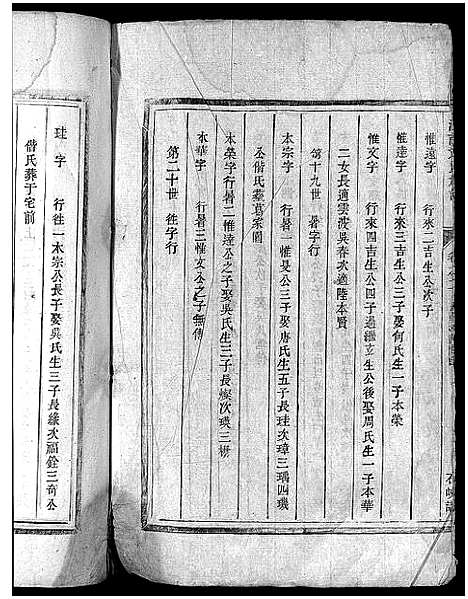 惟遠字 行來二吉生公次子
惟達字 行來三吉生公三子娶何氏生一子本榮
惟文字 行來四吉生公四子過繼立生公後娶周氏生一子本華
二女長適雲波吳春次適陸本賢
第十九世 暑字行
本宗字 行暑一惟旻公三子娶唐氏生五子長珪次璋三瑀四璣
公偕氏塟葛家園
本榮字行暑二惟達公之子娶吳氏生三子長燦次瑛三
本華字 行暑三惟文公之子無傳
第二十世 徃字行
珪字 行徃一本宗公長子娶吳氏生三子長緣次福銓三奇公
偕氏葬于宅前